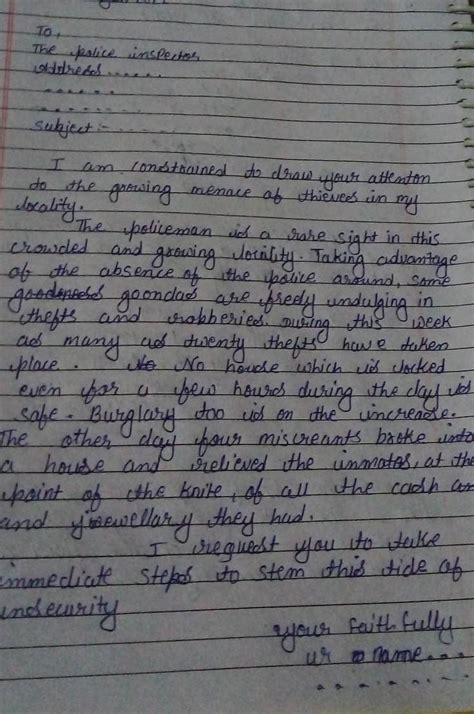 To,
The police inspector
address.....
......
.......
subject:- .......
I am constrained to draw your attenton
to the growing menace of thieves in my
locality.
The policeman is a rare sight in this
crowded and growing locility. Taking advantage
of the absence of the police around, some
goondas are freely indulging in
thefts and robberies. During this week
as many as twenty thefts have taken
place. No house which is locked
even for a few hours during the day is
safe. Burglary too is on the increase.
The other day four miscreants broke into
a house and relieved the inmates, at the
point of the knife, of all the cash an
and jewellary they had.
I request you to take
immediate steps to stem this tide of
insecurity
your faithfully
ur name...
.........